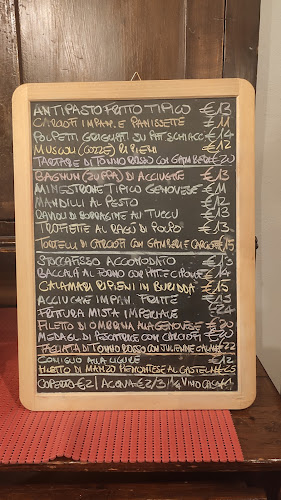 ANTIPASTO FRITTO TIPICO €13
CARCIOFI IMPAN. E PANISSETTE €11
POLPETTI GRIGLIATI SU PAT. SCHIACC €14
MUSCOLI (COZZE) RIPIENI €12
TARTARE DI TONNO ROSSO CON GAMBERI €20
BAGNUM (ZUPPA) DI ACCIUGHE €13
MINESTRONE TIPICO GENOVESE €11
MANDILLI AL PESTO €12
RAVIOLI DI BORRAGINE AU TUCCU €13
TROFIETTE AL RAGÙ DI POLPO €13
TORTELLI DI CARCIOFI CON GAMBERI E CARCIOFI €15
STOCCAFISSO ACCOMODATO €13
BACCALÀ AL FORNO CON PAT. E CIPOLLE €14
CALAMARI RIPIENI IN BURIDDA €15
ACCIUGHE IMPAN. FRITTE €13
FRITTURA MISTA IMPERIALE €24
FILETTO DI OMBRINA ALLA GENOVESE €20
MEDAGL. DI PESCATRICE CON CARCIOFI €20
TAGLIATA DI TONNO ROSSO CON JULIENNE €22
CONIGLIO ALLA LIGURE €12
FILETTO DI MANZO PIEMONTESE AL CASTELM €25
COPERTO €2/ ACQUA €2/3/ ¼ VINO CASA €4